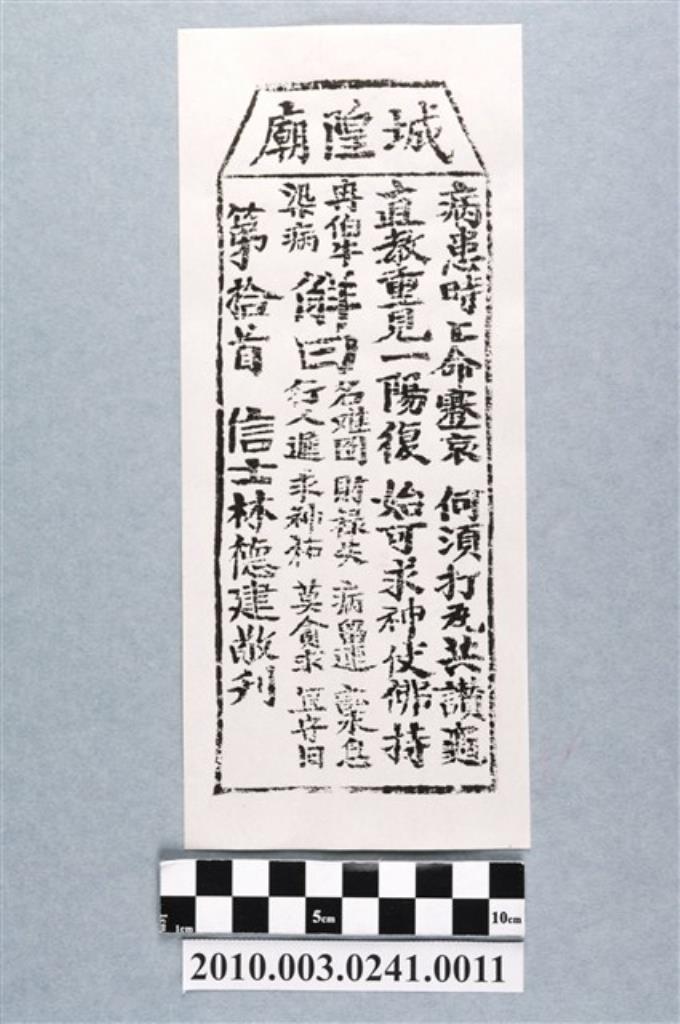 城隍廟
病患時正命蹇衰 何須打瓦共讃龜
直教重見一陽復 始可求神仗佛持
冉伯牛
染病
解曰
名難圖 財祿失 病留連 訟未息
行人遲 求神祐 莫貪求 宜守旧
第拾首 信士林德建敬刊
1cm 5cm 10cm
2010.003.0241.0011